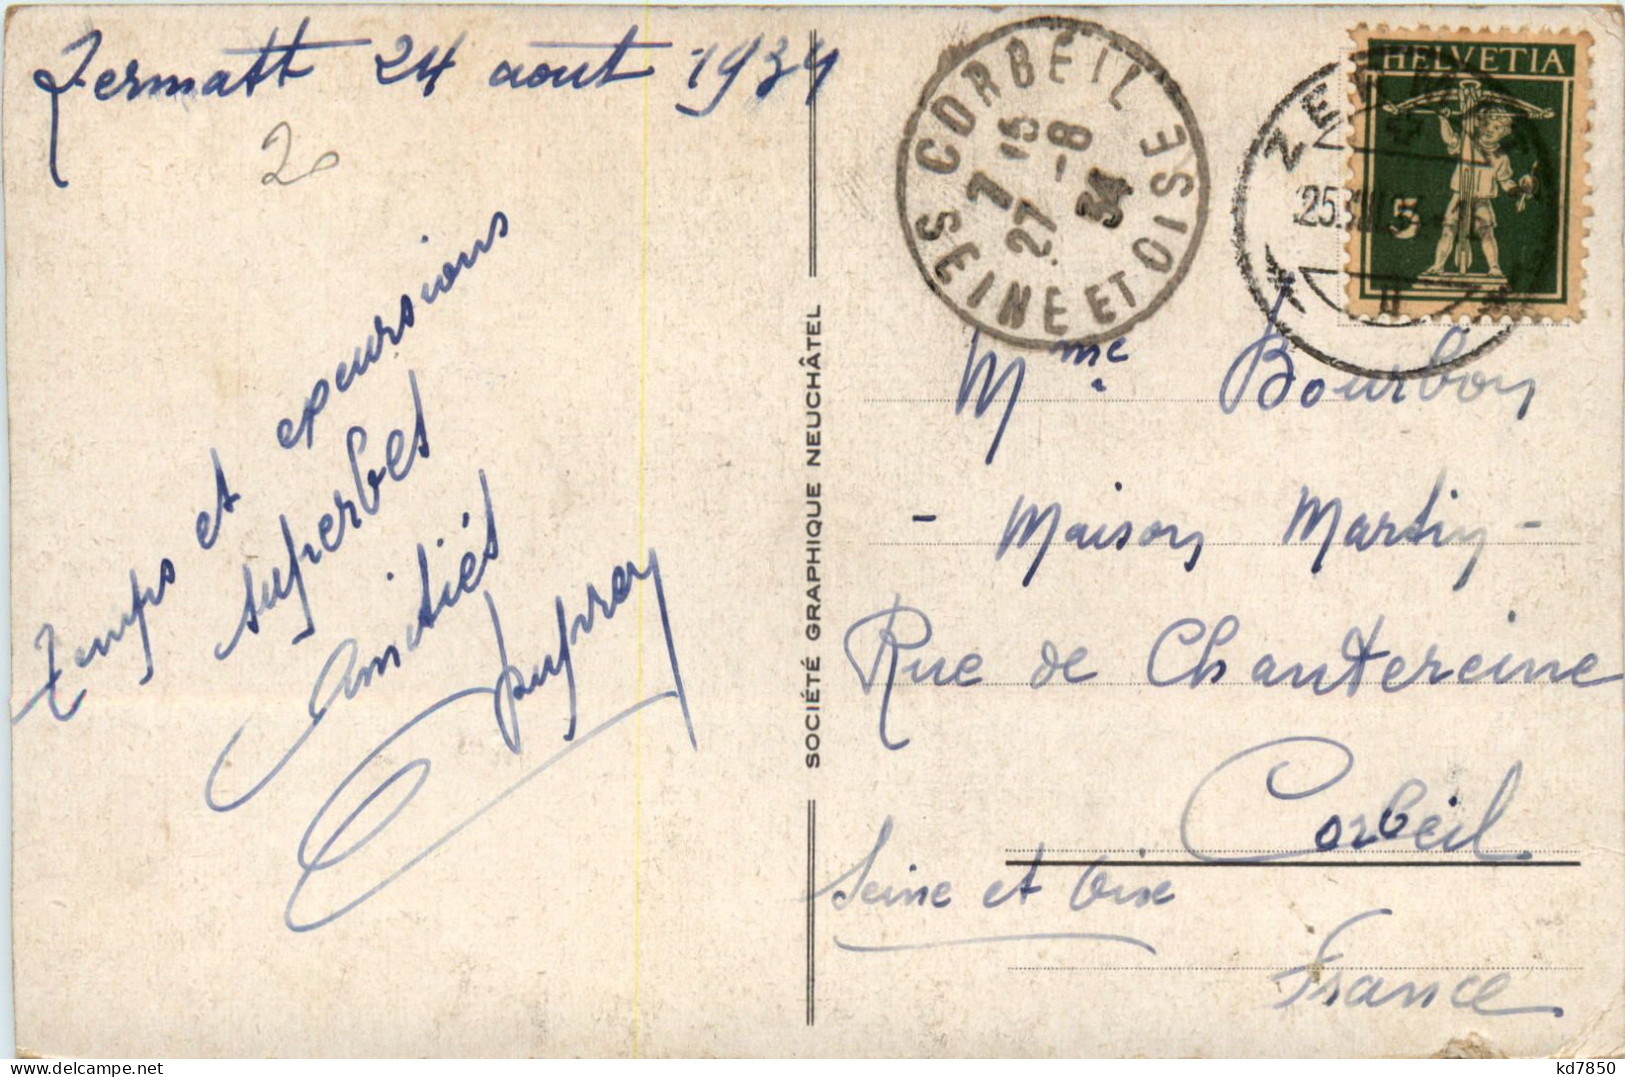 Zermatt 24 aout 1934
20
temps et excursions
superbes
Amitiés
Dufrey
SOCIÉTÉ GRAPHIQUE NEUCHÂTEL
CORBEIL
7 15
27 -8
34
SEINE ET OISE
HELVETIA
5
ZERMATT
25.VIII.34
Mme Bourbon
- Maison Martin -
Rue de Chantereine
Corbeil
Seine et Oise
France
kd7850